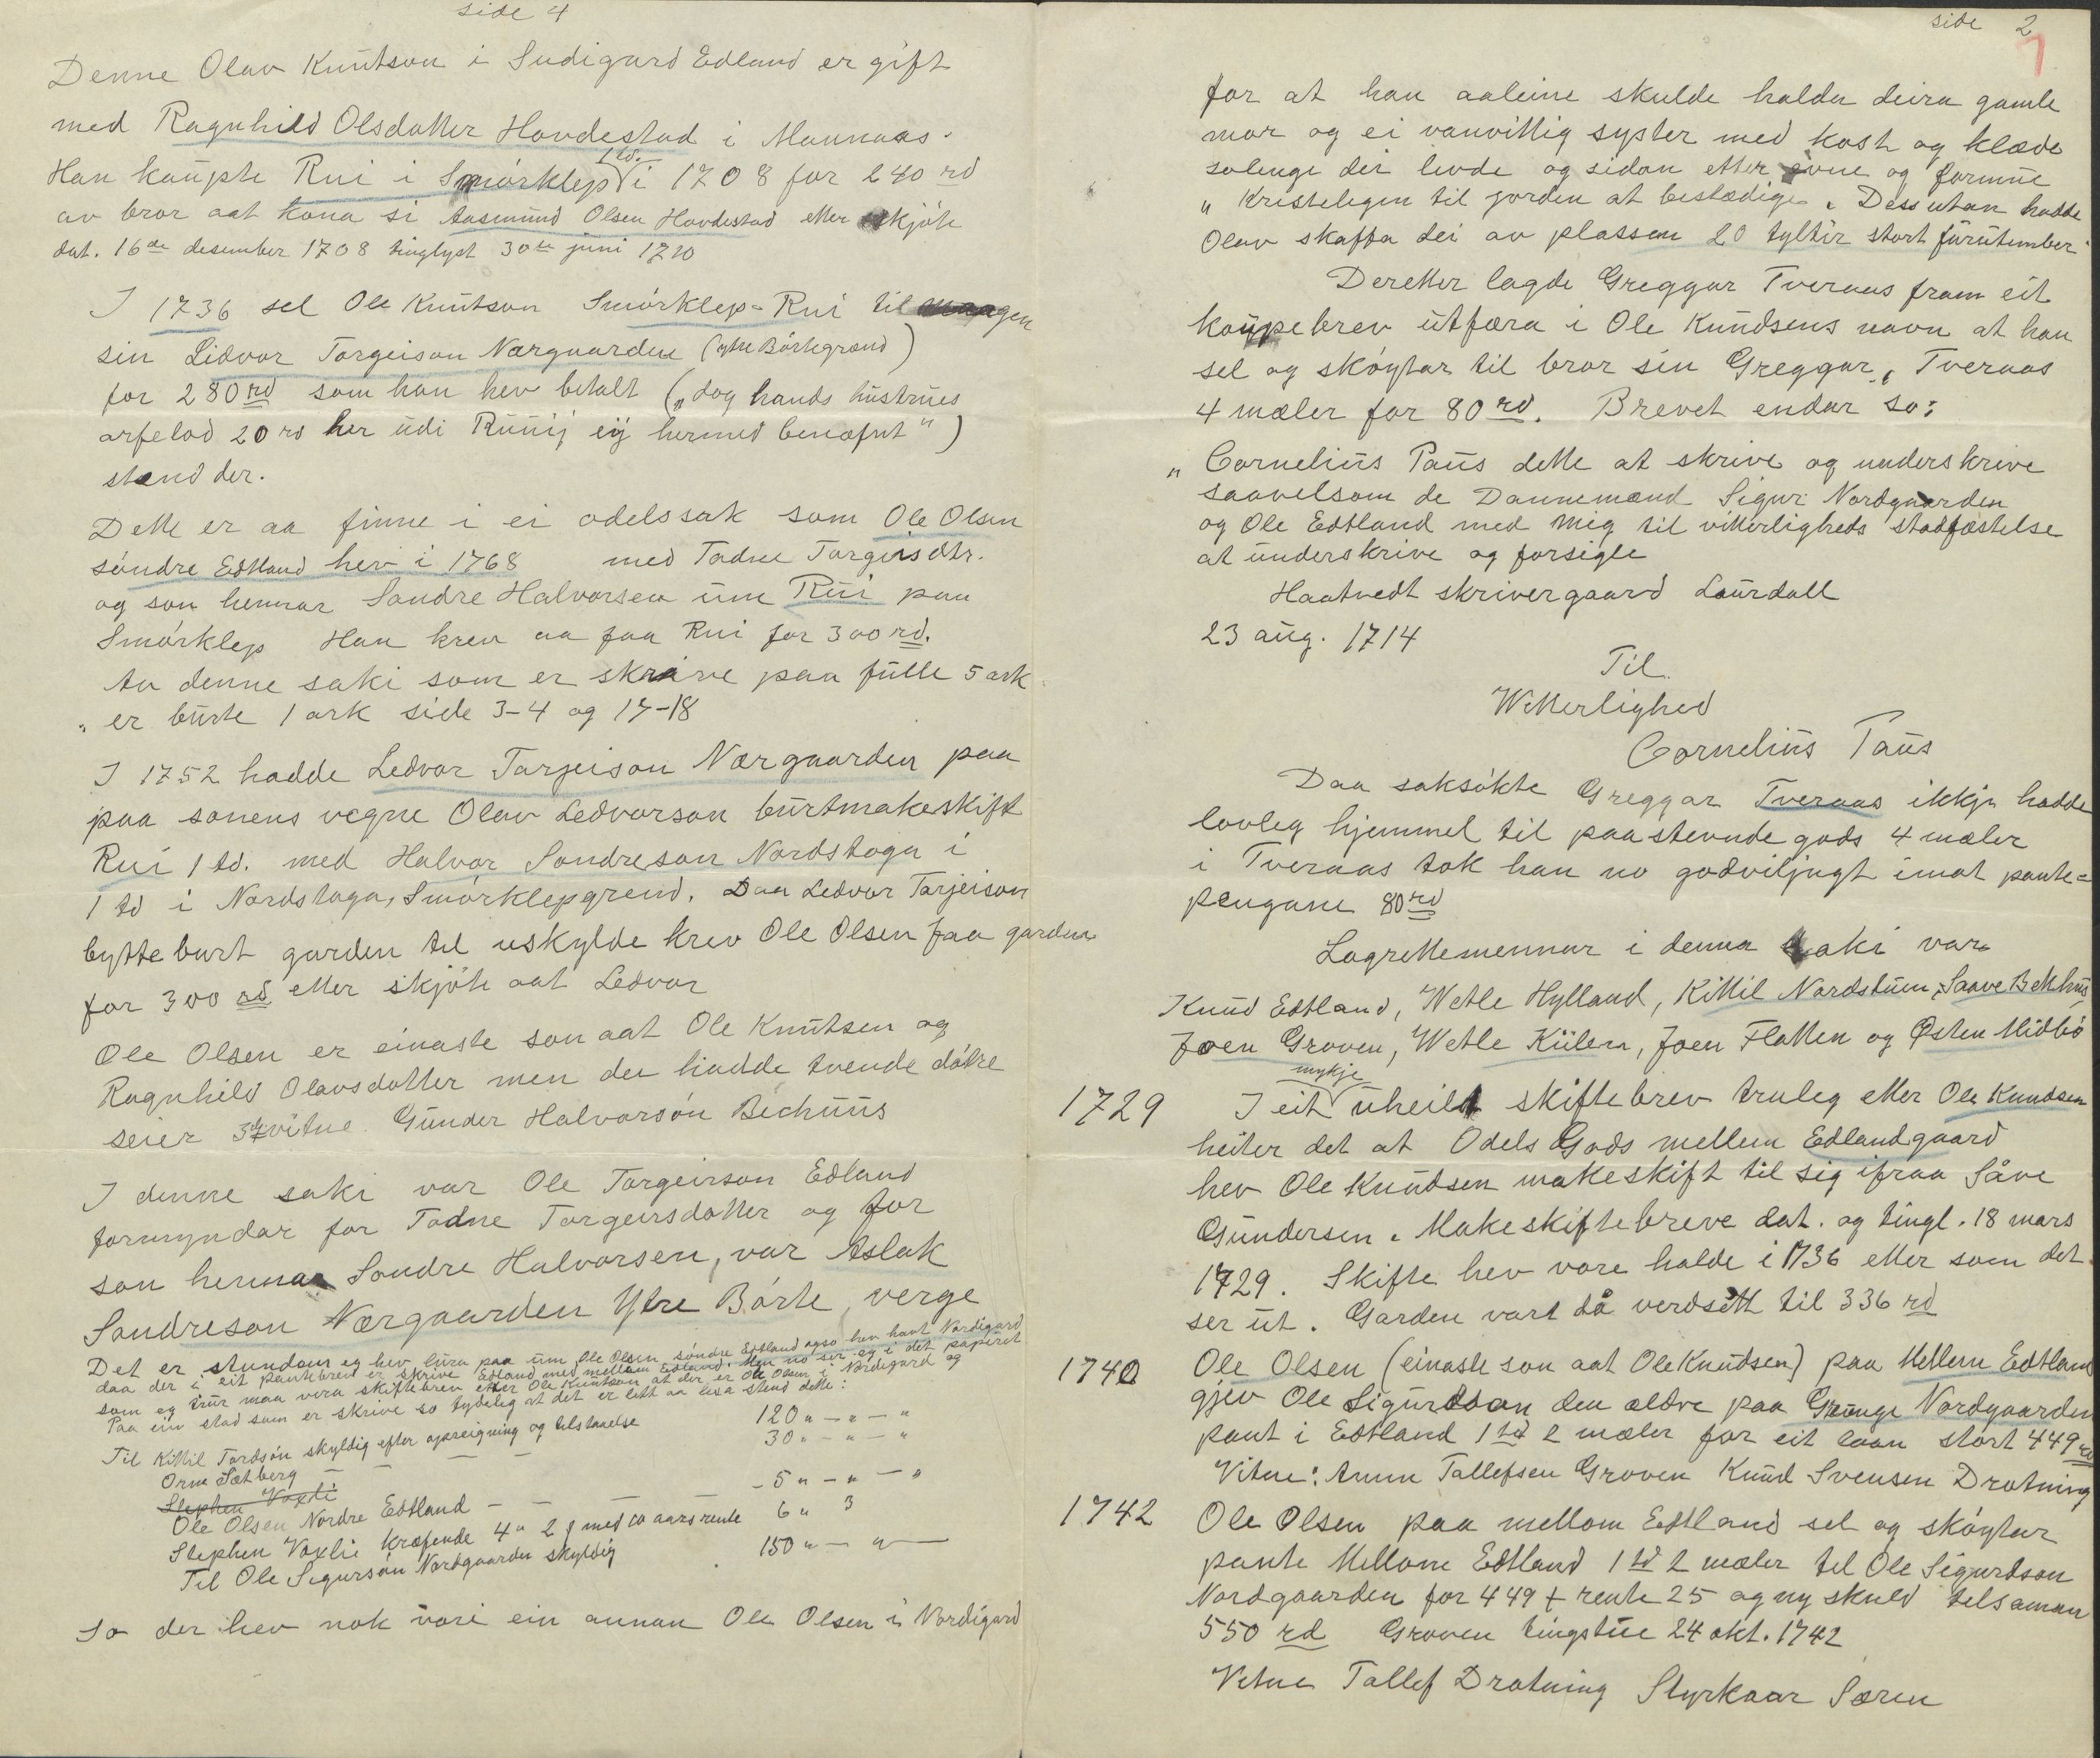 side 4
Denne Olav Knutson i Sudigard Edland er gift
med Ragnhild Olsdatter Hovdestad i Mannaas.
Han kaupte Rui i Smørklep 1 td. i 1708 for 240 rd
av bror aat kona si Aasmund Olsen Hovdestad etter skjøte
dat. 16de desember 1708 tinglyst 30te juni 1710
I 1736 sel Ole Knutson Smørklep-Rui til maagen
sin Lidvor Torgeison Nærgaarden (ytre Børtegrænd)
for 280 rd som han hev betalt („dog hands hustrues
arfelod 20 rd her udi Ruuij eij hermed benæfnt")
stend der.
Dette er aa finne i ei odelssak som Ole Olsen
søndre Edtland hev i 1768 med Tadne Torgeisdtr.
og son hennar Sondre Halvorsen um Rui paa
Smørklep Han krev aa faa Rui for 300 rd.
Av denne saki som er skrive paa fulle 5 ark
„ er burte 1 ark side 3-4 og 17-18
I 1752 hadde Ledvor Tarjeison Nørgaarden paa
paa sonens vegne Olav Ledvorson burtmakeskift
Rui 1 td. med Halvor Sondreson Nordstoga i
1 td i Nordstoga, Smørklepgrend. Daa Ledvor Tarjeison
bytte burt garden til uskylde krev Ole Olsen faa garden
for 300 rd etter skjøte aat Ledvor
Ole Olsen er einaste son aat Ole Knutsen og
Ragnhild Olavsdatter men dei hadde tvende døtre
seier 3de vitne Gunder Halvorsøn Bechuus
I denne saki var Ole Torgeirson Edland
formyndar for Tadne Torgeirsdatter og for
son hennar Sondre Halvorsen, var Aslak
Sondreson Nærgaarden Ytre Børte, verge
Det er stundom eg hev lura paa um Ole Olsen søndre Edtland ogso hev havt Nordigard
daa der i eit pantebrev er skrive Edland med mellom Edland. Men no ser eg i det papiret
som eg trur maa vera skiftebrev etter Ole Knutson at der er Ole Olsen i Nidigard og
Paa ein stad som er skrive so tydeleg at det er lett aa lesa stend dette:
Til Kittil Tordsøn skyldig efter opreigning og tilstaaelse 120 „ — „ — „
Orm Sætberg — — — — 30 „ — „ — „
Stephen Vaxli
Ole Olsen Nordre Edtland — — — 5 „ — „ — „
Stephen Vaxlie kræfende 4 „ 2 § med 10 aars rente 6 „ 3
Til Ole Sigursøn Nordgaarden skyldig 150 „ — „ —
So der hev nok vori ein annan Ole Olsen i Nordigard
side 2
7
for at han aaleine skulde halda deira gamle
mor og ei vanvittig syster med kost og klæde
solenge dei levde og sidan etter evne og formue
„ kristelegen til jorden at bestædige. Dessutan hadde
Olav skaffa dei av plassen 20 tyltir stort furutember
Deretter lagde Greggar Tveraas fram eit
kaupebrev utfæra i Ole Knudsens navn at han
sel og skøytar til bror sin Greggar, Tveraas
4 mæler for 80 rd. Brevet endar so:
„ Cornelius Paus dette at skrive og underskrive
saavelsom de Dannemænd Sigur Nordgaarden
og Ole Edtland med mig til vitterligheds stadfæstelse
at underskrive og forsigle
Haatvedt skrivergaard Laurdall
23 aug. 1714
Til
Witterlighed
Cornelius Paus
Daa saksøkte Greggar Tveraas ikkje hadde
lovleg hjemmel til paastevnde gods 4 mæler
i Tveraas tok han no godviljugt imot pante-
pengane 80 rd
Lagrettemennar i denna saki var
Knud Edtland, Wetle Hylland, Kittil Nordstuen, Saave Bekhus
Joen Groven, Wetle Kiilen, Joen Flatten og Østen Midbø
1729 I eit mykje uheilt skiftebrev truleg etter Ole Knudsen
heiter det at Odels Gods mellem Edlandgaard
hev Ole Knudsen makeskift til sig ifraa Såve
Gundersen. Makeskiftebreve dat. og tingl. 18 mars
1729. Skifte hev vore halde i 1736 etter som det
ser ut. Garden vart då verdsett til 336 rd
1740 Ole Olsen (einaste son aat Ole Knudsen) paa Mellem Edtland
gjev Ole Sigurdson den ældre paa Grunge Nordgaarden
pant i Edtland 1 td 2 mæler for eit laan stort 449 rd
Vitne: Anun Tallefsen Groven Knud Svensen Drotning
1742 Ole Olsen paa mellom Edtland sel og skøytar
pante Mellom Edtland 1 td 2 mæler til Ole Sigurdson
Nordgaarden for 449 + rente 25 og ny skuld tilsaman
550 rd Groven tingstue 24 okt. 1742
Vitne Tallef Drotning Styrkaar Søren